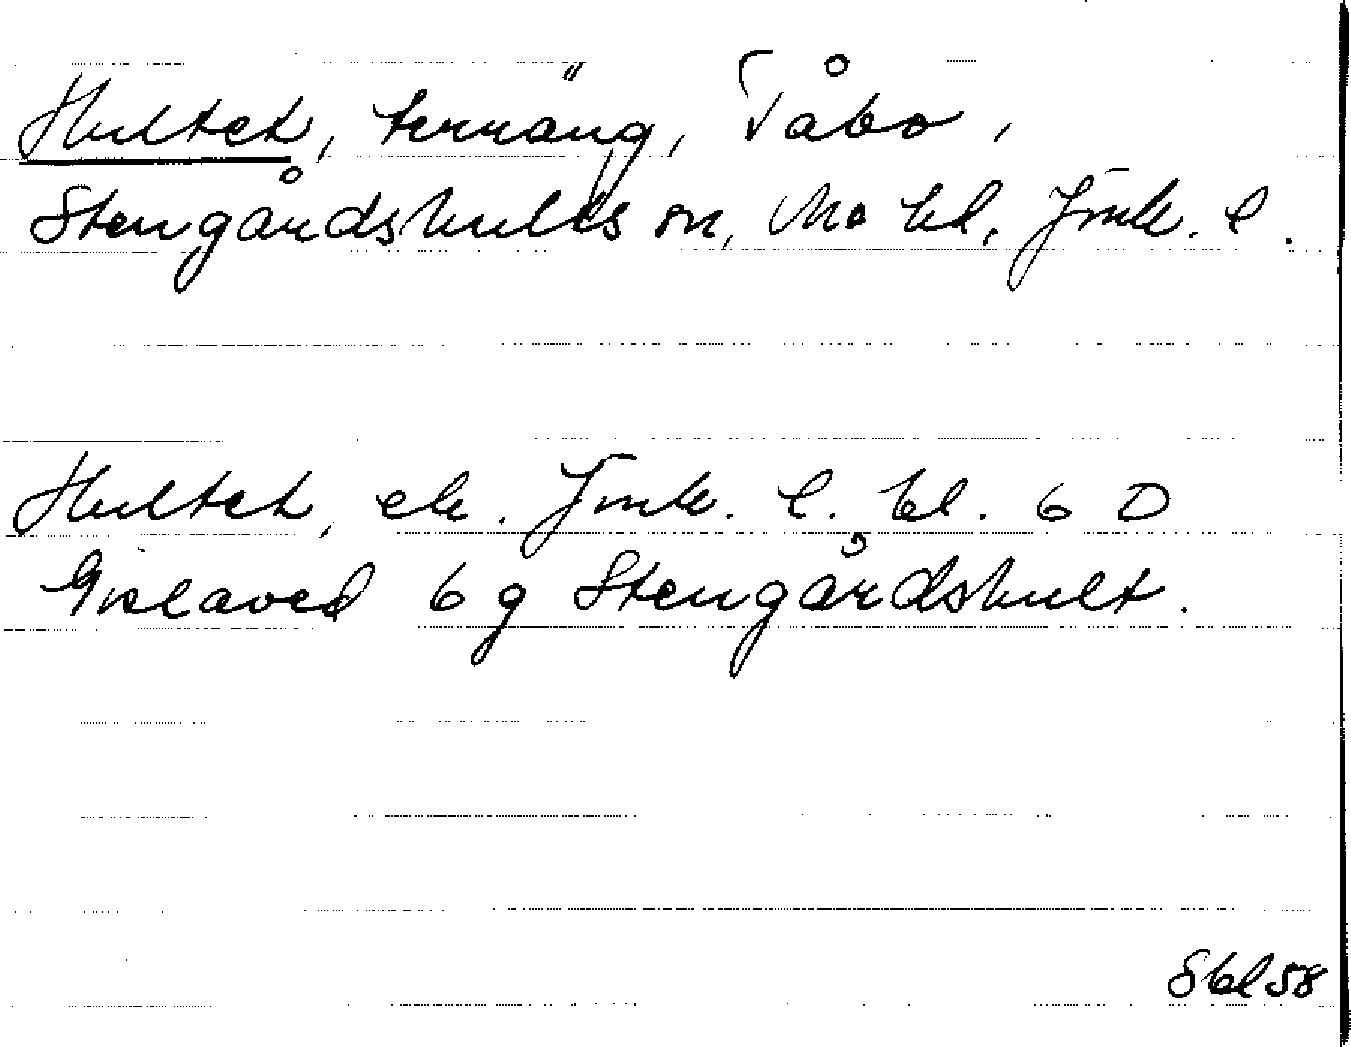 Hultet, terräng, Tåbo,
Stengårdshults sn, Mo hd, Jönk. l.
Hultet, ek. Jönk. l. bl. 6 D
Gislaved 6 g Stengårdshult.
Sbl 58